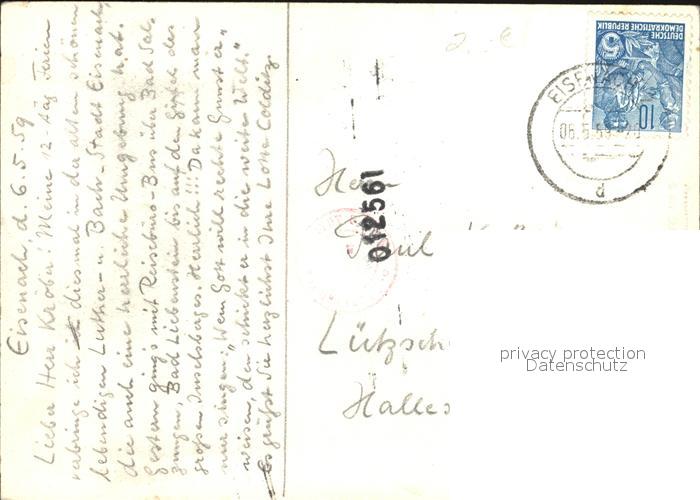 Eisenach, d. 6.5.59
Lieber Herr Kröber! Meine 12-täg Ferien
verbringe ich diesmal in der alten schönen
lebendigen Luther- u. Bach-Stadt Eisenach,
die auch eine herrliche Umgebung hat.
Gestern ging's mit Reisebüro-Bus über Bad Sal-
zungen, Bad Liebenstein bis auf den Gipfel des
großen Inselsberges. Herrlich!!! Da kann man
nur singen: "Wem Gott will rechte Gunst er-
weisen, den schickt er in die weite Welt."
Es grüßt Sie herzlichst Ihre Lotte
DEUTSCHE
DEMOKRATISCHE REPUBLIK
10
EISENACH
06.5.59
d
012561
Herrn
Paul
Lützsch
Halles
privacy protection
Datenschutz